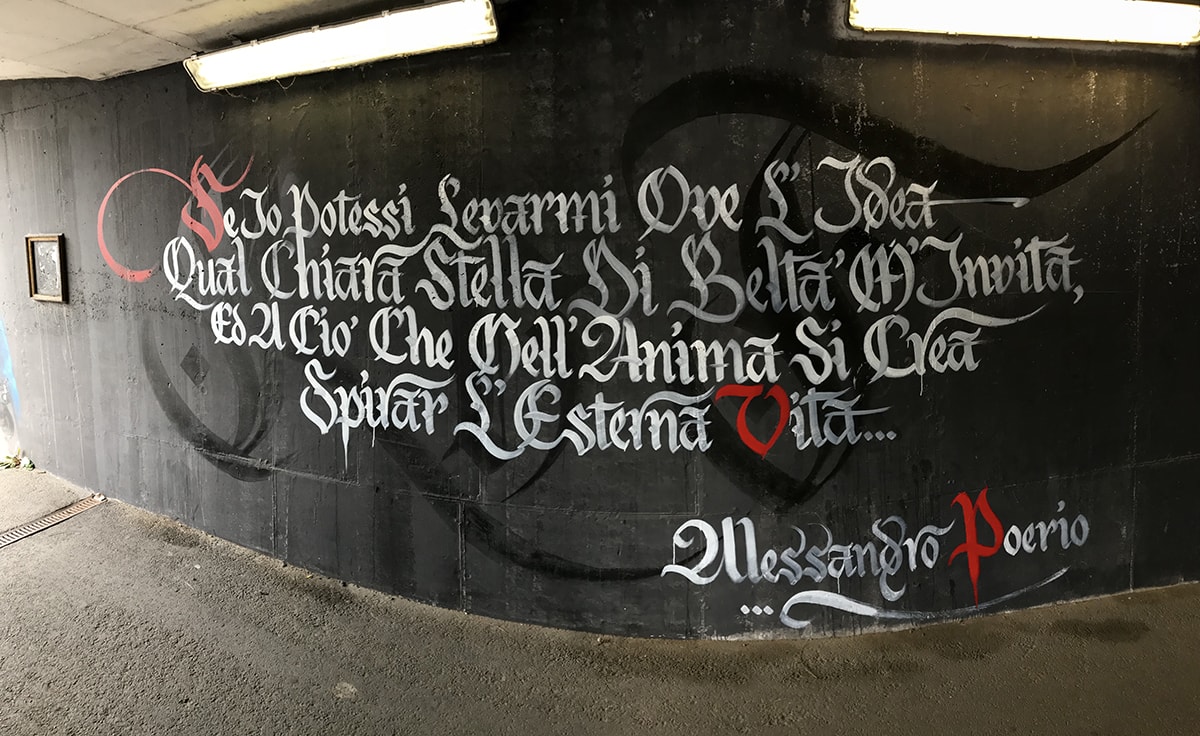 Se Io Potessi Levarmi Ove L' Idea
Qual Chiara Stella Di Belta' M' Invita,
Ed A Cio' Che Nell' Anima Si Crea
Spirar L' Esterna Vita...
Alessandro Poerio
...